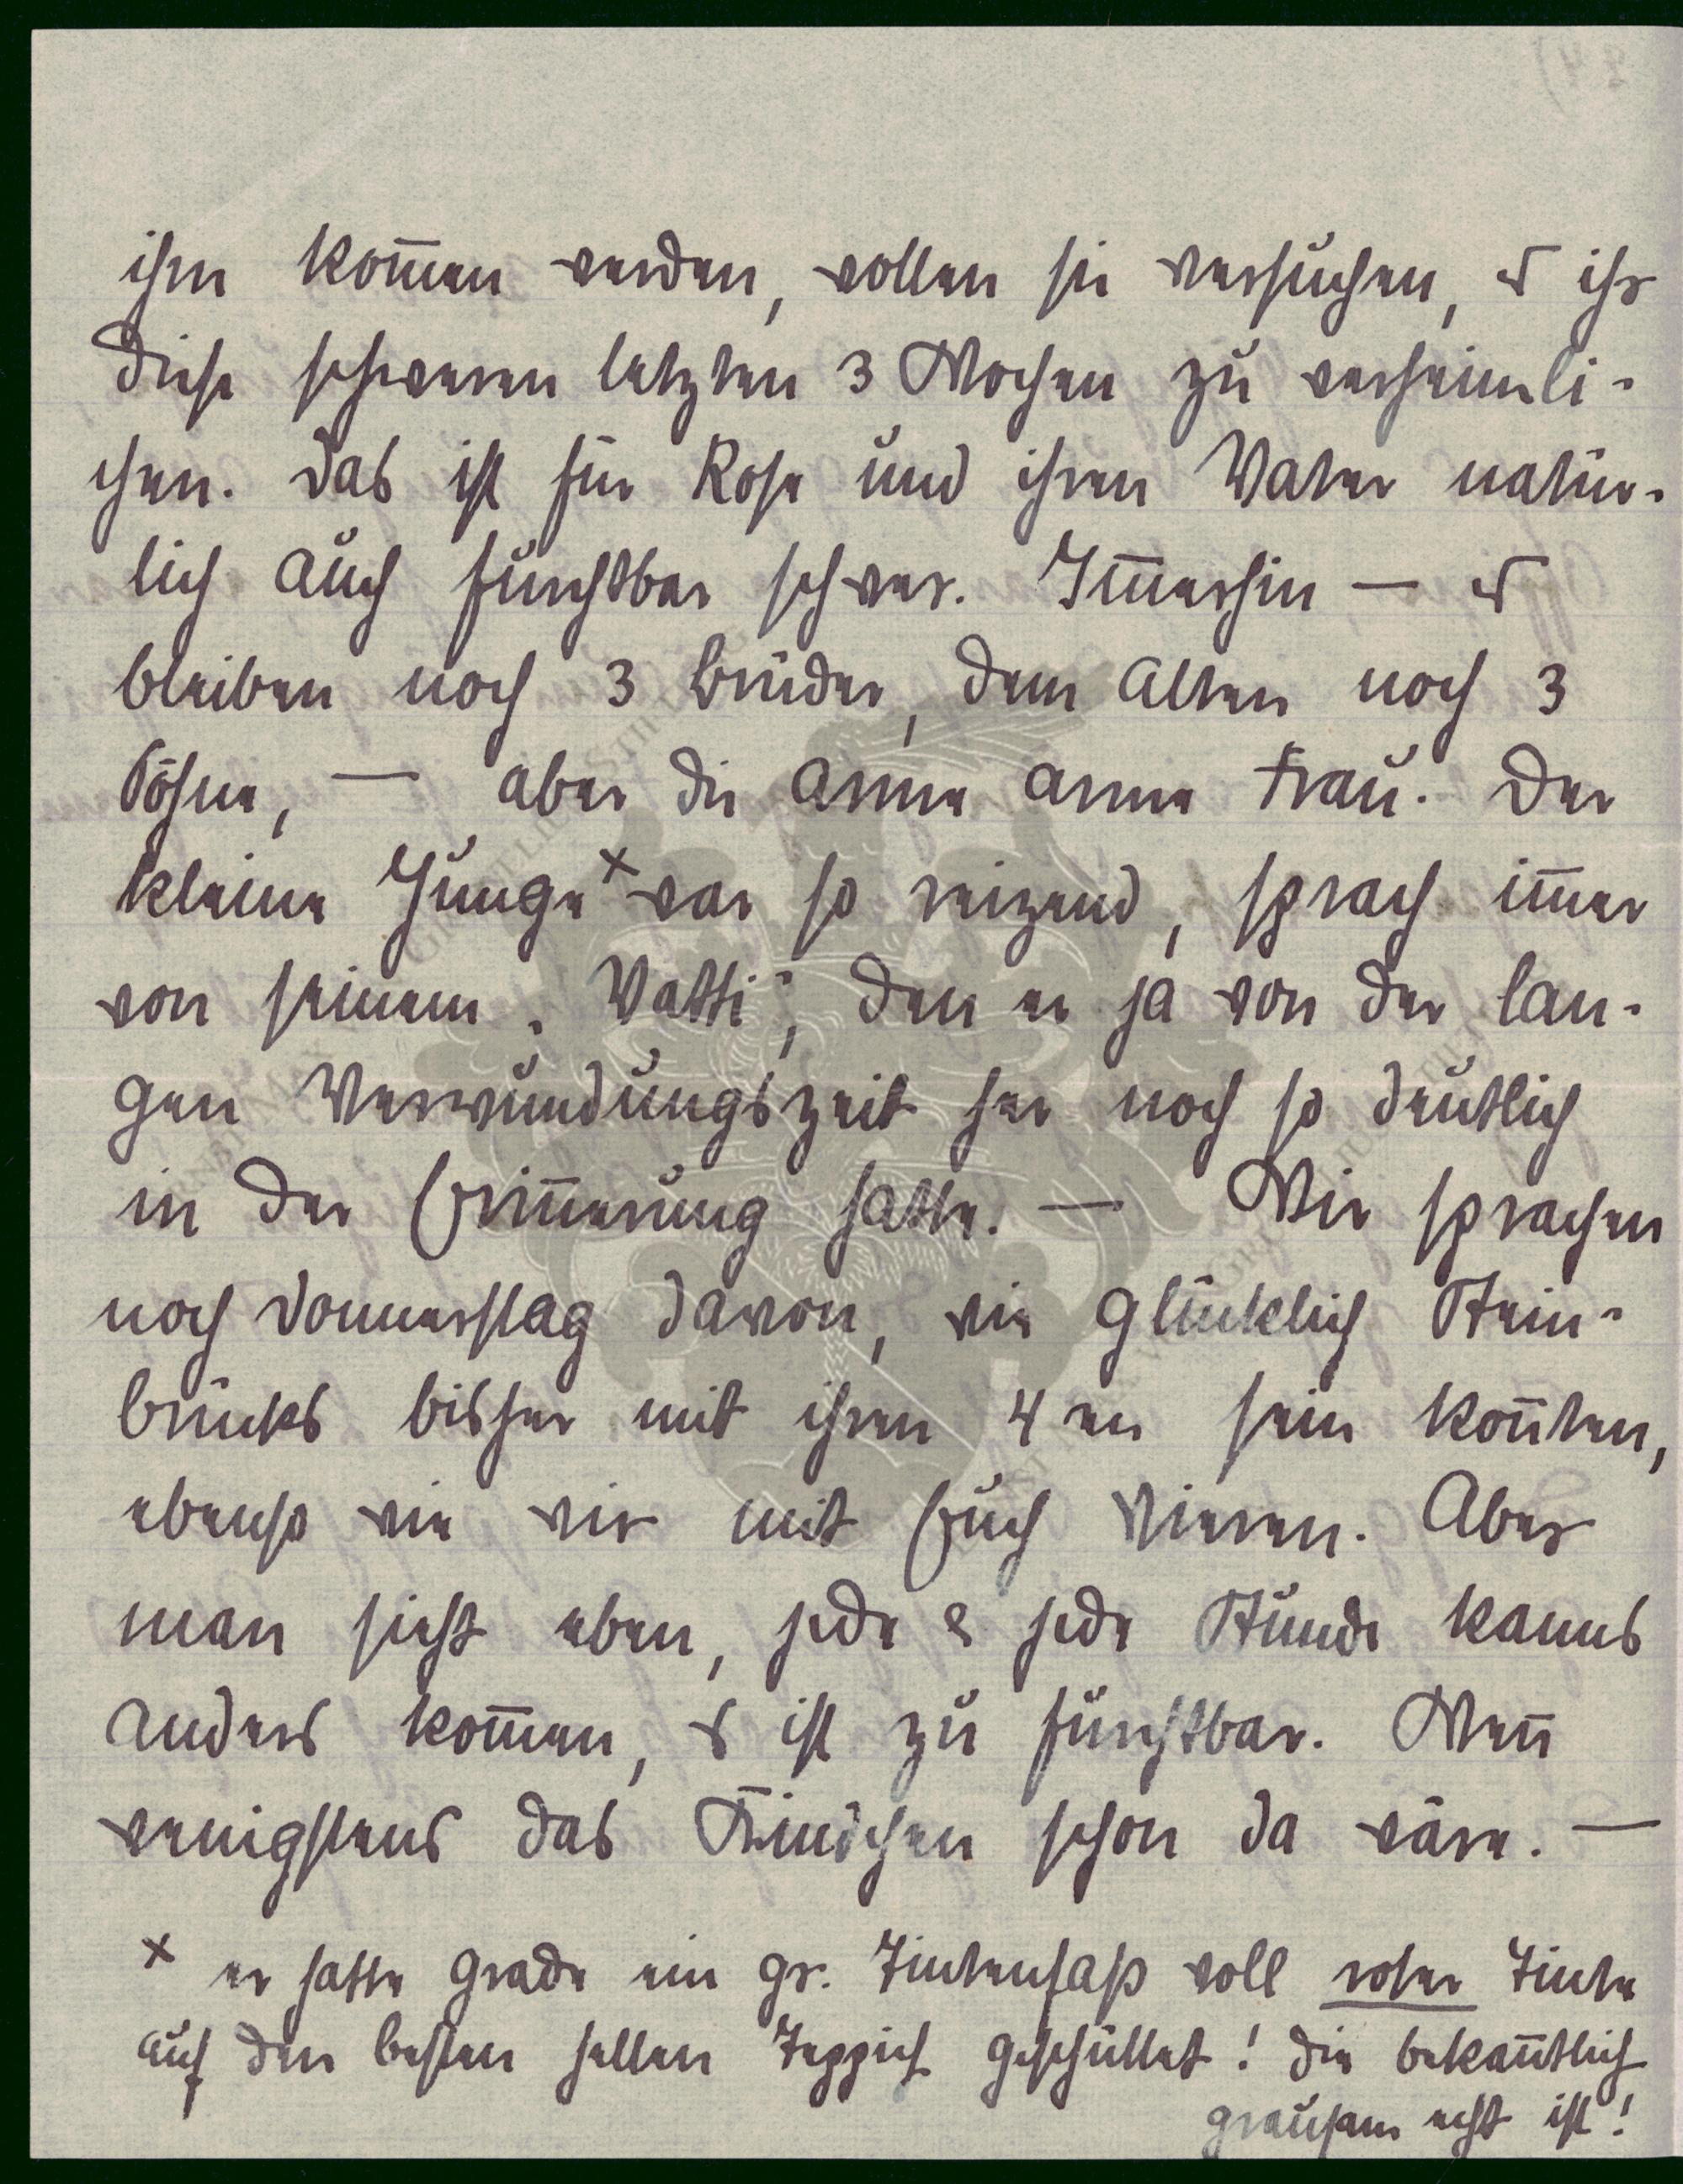 ihm kom̄en werden, wollen sie versuchen, es ihr
diese schweren letzten 3 Wochen zu verheimli-
chen. Das ist für Rose und ihren Vater natür-
lich auch furchtbar schwer. Im̄erhin — es
bleiben noch 3 Brüder, dem Alten noch 3
Söhne, — aber die arme arme Frau. Der
kleine Junge x war so reizend, sprach im̄er
von seinem „Vatti", den er ja von der lan-
gen Verwundungszeit her noch so deutlich
in der Erin̄erung hatte. — Wir sprachen
noch Donnerstag davon, wie glücklich Stein-
brücks bisher mit ihren 4en sein kon̄ten,
ebenso wie wir mit Euch Vieren. Aber
man sieht eben, jede & jede Stunde kanns
anders kom̄en, es ist zu furchtbar. Wen̄
wenigstens das Kindchen schon da wäre. —
x er hatte grade ein gr. Tintenfaß voll roter Tinte
auf den besten hellen Teppich geschüttet! die bekan̄tlich
grausam echt ist!